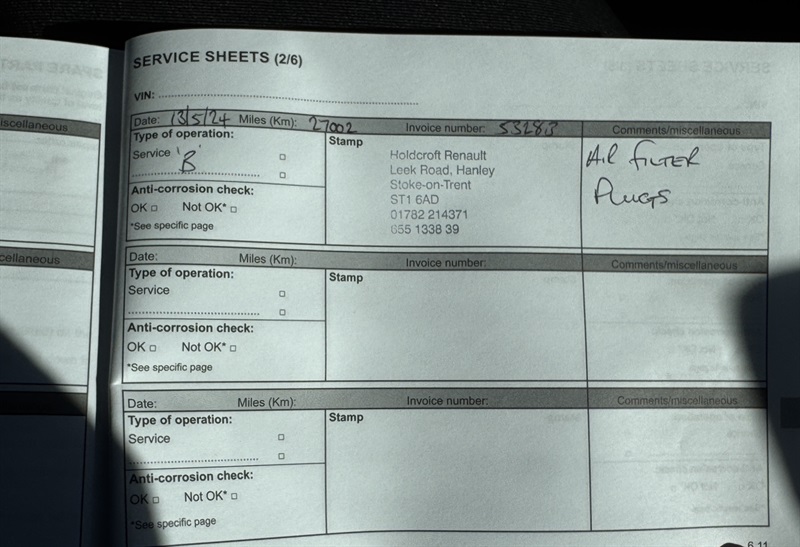 SERVICE SHEETS (2/6)
VIN:
iscellaneous
Date: 13/5/24 Miles (Km): 27002 Invoice number: 53283 Comments/miscellaneous
Type of operation:
Stamp
Service 'B'
Anti-corrosion check:
OK Not OK*
*See specific page
Holdcroft Renault
Leek Road, Hanley
Stoke-on-Trent
ST1 6AD
01782 214371
655 1338 39
AIR FILTER
PLUGS
cellaneous
Date: Miles (Km): Invoice number: Comments/miscellaneous
Type of operation:
Stamp
Service
Anti-corrosion check:
OK Not OK*
*See specific page
Date: Miles (Km): Invoice number: Comments/miscellaneous
Type of operation:
Stamp
Service
Anti-corrosion check:
OK Not OK*
*See specific page
6.11